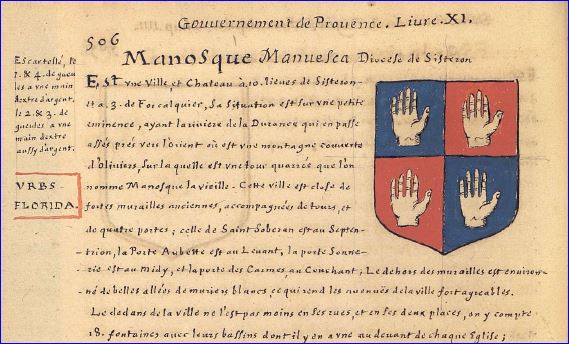 Gouuernement de Prouence. Liure. XI.
506
Manosque Manuesca Diocese de Sisteron
Escartellé, le
1. & 4. de gueu
les a vne main
dextre d'argent.
le 2. & 3. de
gueules a vne
main dextre
aussy d'argent.
VRBS-
FLORIDA.
Est vne Ville et Chateau à 10. lieues de Sisteron
et a 3. de Forcalquier, Sa situation est sur vne petite
eminence, ayant la riuiere de la Durance qui en passe
assés prés vers l'orient où est vne montagne couuerte
d'oliuiers, Sur la quelle est vne tour quarrée que l'on
nomme Manosque la vieille - Cette ville est close de
fortes murailles anciennes, accompagnées de tours, et
de quatre portes; celle de Saint Soberan est au Septen-
- trion, la Porte Aubette est au Leuant, la porte Sonne-
- rie est au Midy, et la porte des Carmes, au Couchant; Le dehors des murailles est enuiron-
- né de belles allées de muriers blancs, ce qui rend les auenuës de la ville fort agreables.
Le dedans de la ville ne l'est pas moins en ses rues, et en ses deux places, on y compte
18. fontaines auec leurs bassins dont il y en a vne au deuant de chaque Eglise;